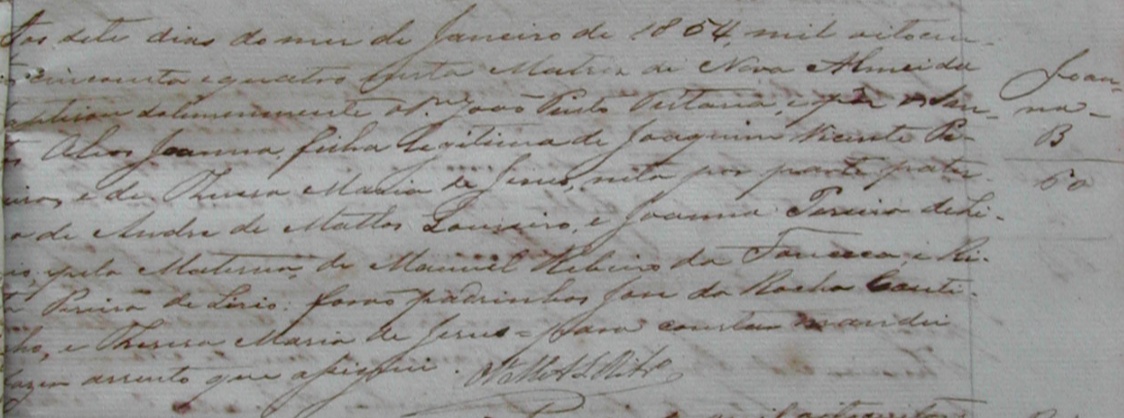 Aos sete dias do mez de Janeiro de 1854, mil oitocen-
cincoenta e quatro nesta Matriz de Nova Almeida
baptisou solemnemente o Rº João Pinto Pestana, e pôz os San-
Oleos Joanna, filha legitima de Joaquim Vicente
e de Theresa Maria de Jesus, neta por parte pater-
de Andre de Mattos Loureiro, e Joanna Pereira de Li-
pela Materna, de Manuel Ribeiro da Fonceca, e Ri-
Pereira de Lirio. foraõ padrinhos Jose da Rocha Couti-
nho, e Theresa Maria de Jesus = para constar mandei
fazer assento que assignei.
Joan-
na-
B
60